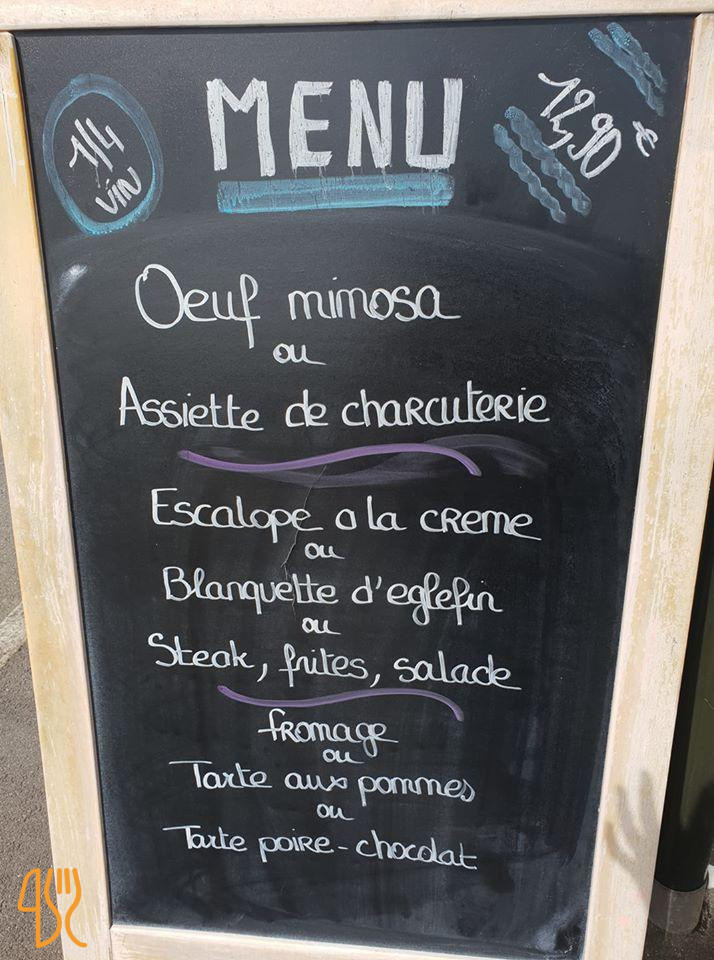 1/4
vin
MENU
12,90 €
Oeuf mimosa
ou
Assiette de charcuterie
Escalope a la creme
ou
Blanquette d'eglefin
ou
Steak, frites, salade
fromage
ou
Tarte aux pommes
ou
Tarte poire-chocolat